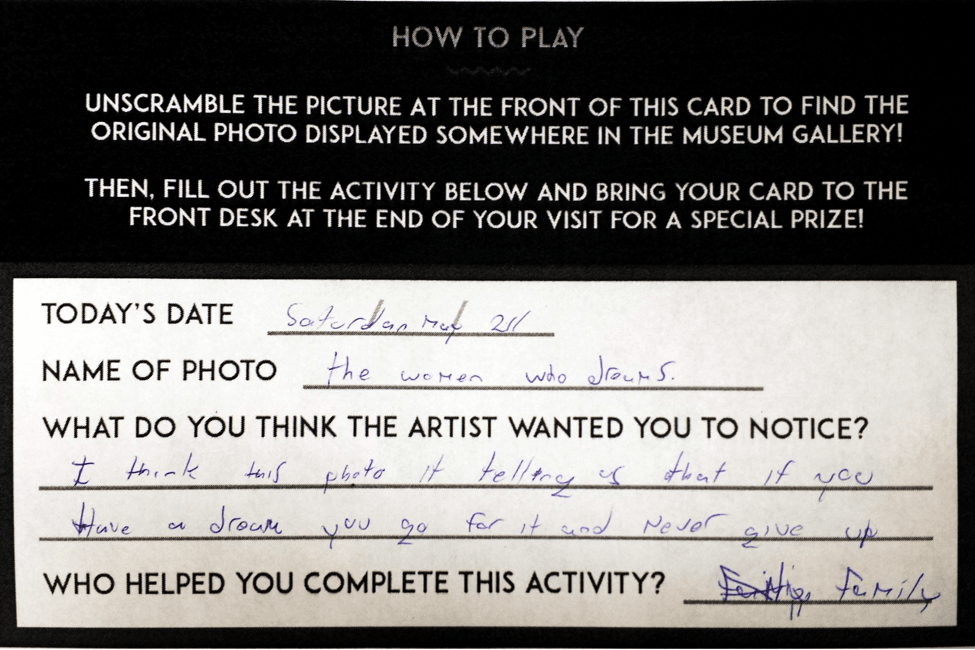 HOW TO PLAY
UNSCRAMBLE THE PICTURE AT THE FRONT OF THIS CARD TO FIND THE
ORIGINAL PHOTO DISPLAYED SOMEWHERE IN THE MUSEUM GALLERY!
THEN, FILL OUT THE ACTIVITY BELOW AND BRING YOUR CARD TO THE
FRONT DESK AT THE END OF YOUR VISIT FOR A SPECIAL PRIZE!
TODAY'S DATE May
NAME OF PHOTO the women who dreams.
WHAT DO YOU THINK THE ARTIST WANTED YOU TO NOTICE?
I think this photo it telling us that if you
Have a dream you go for it and Never give up
WHO HELPED YOU COMPLETE THIS ACTIVITY? Family